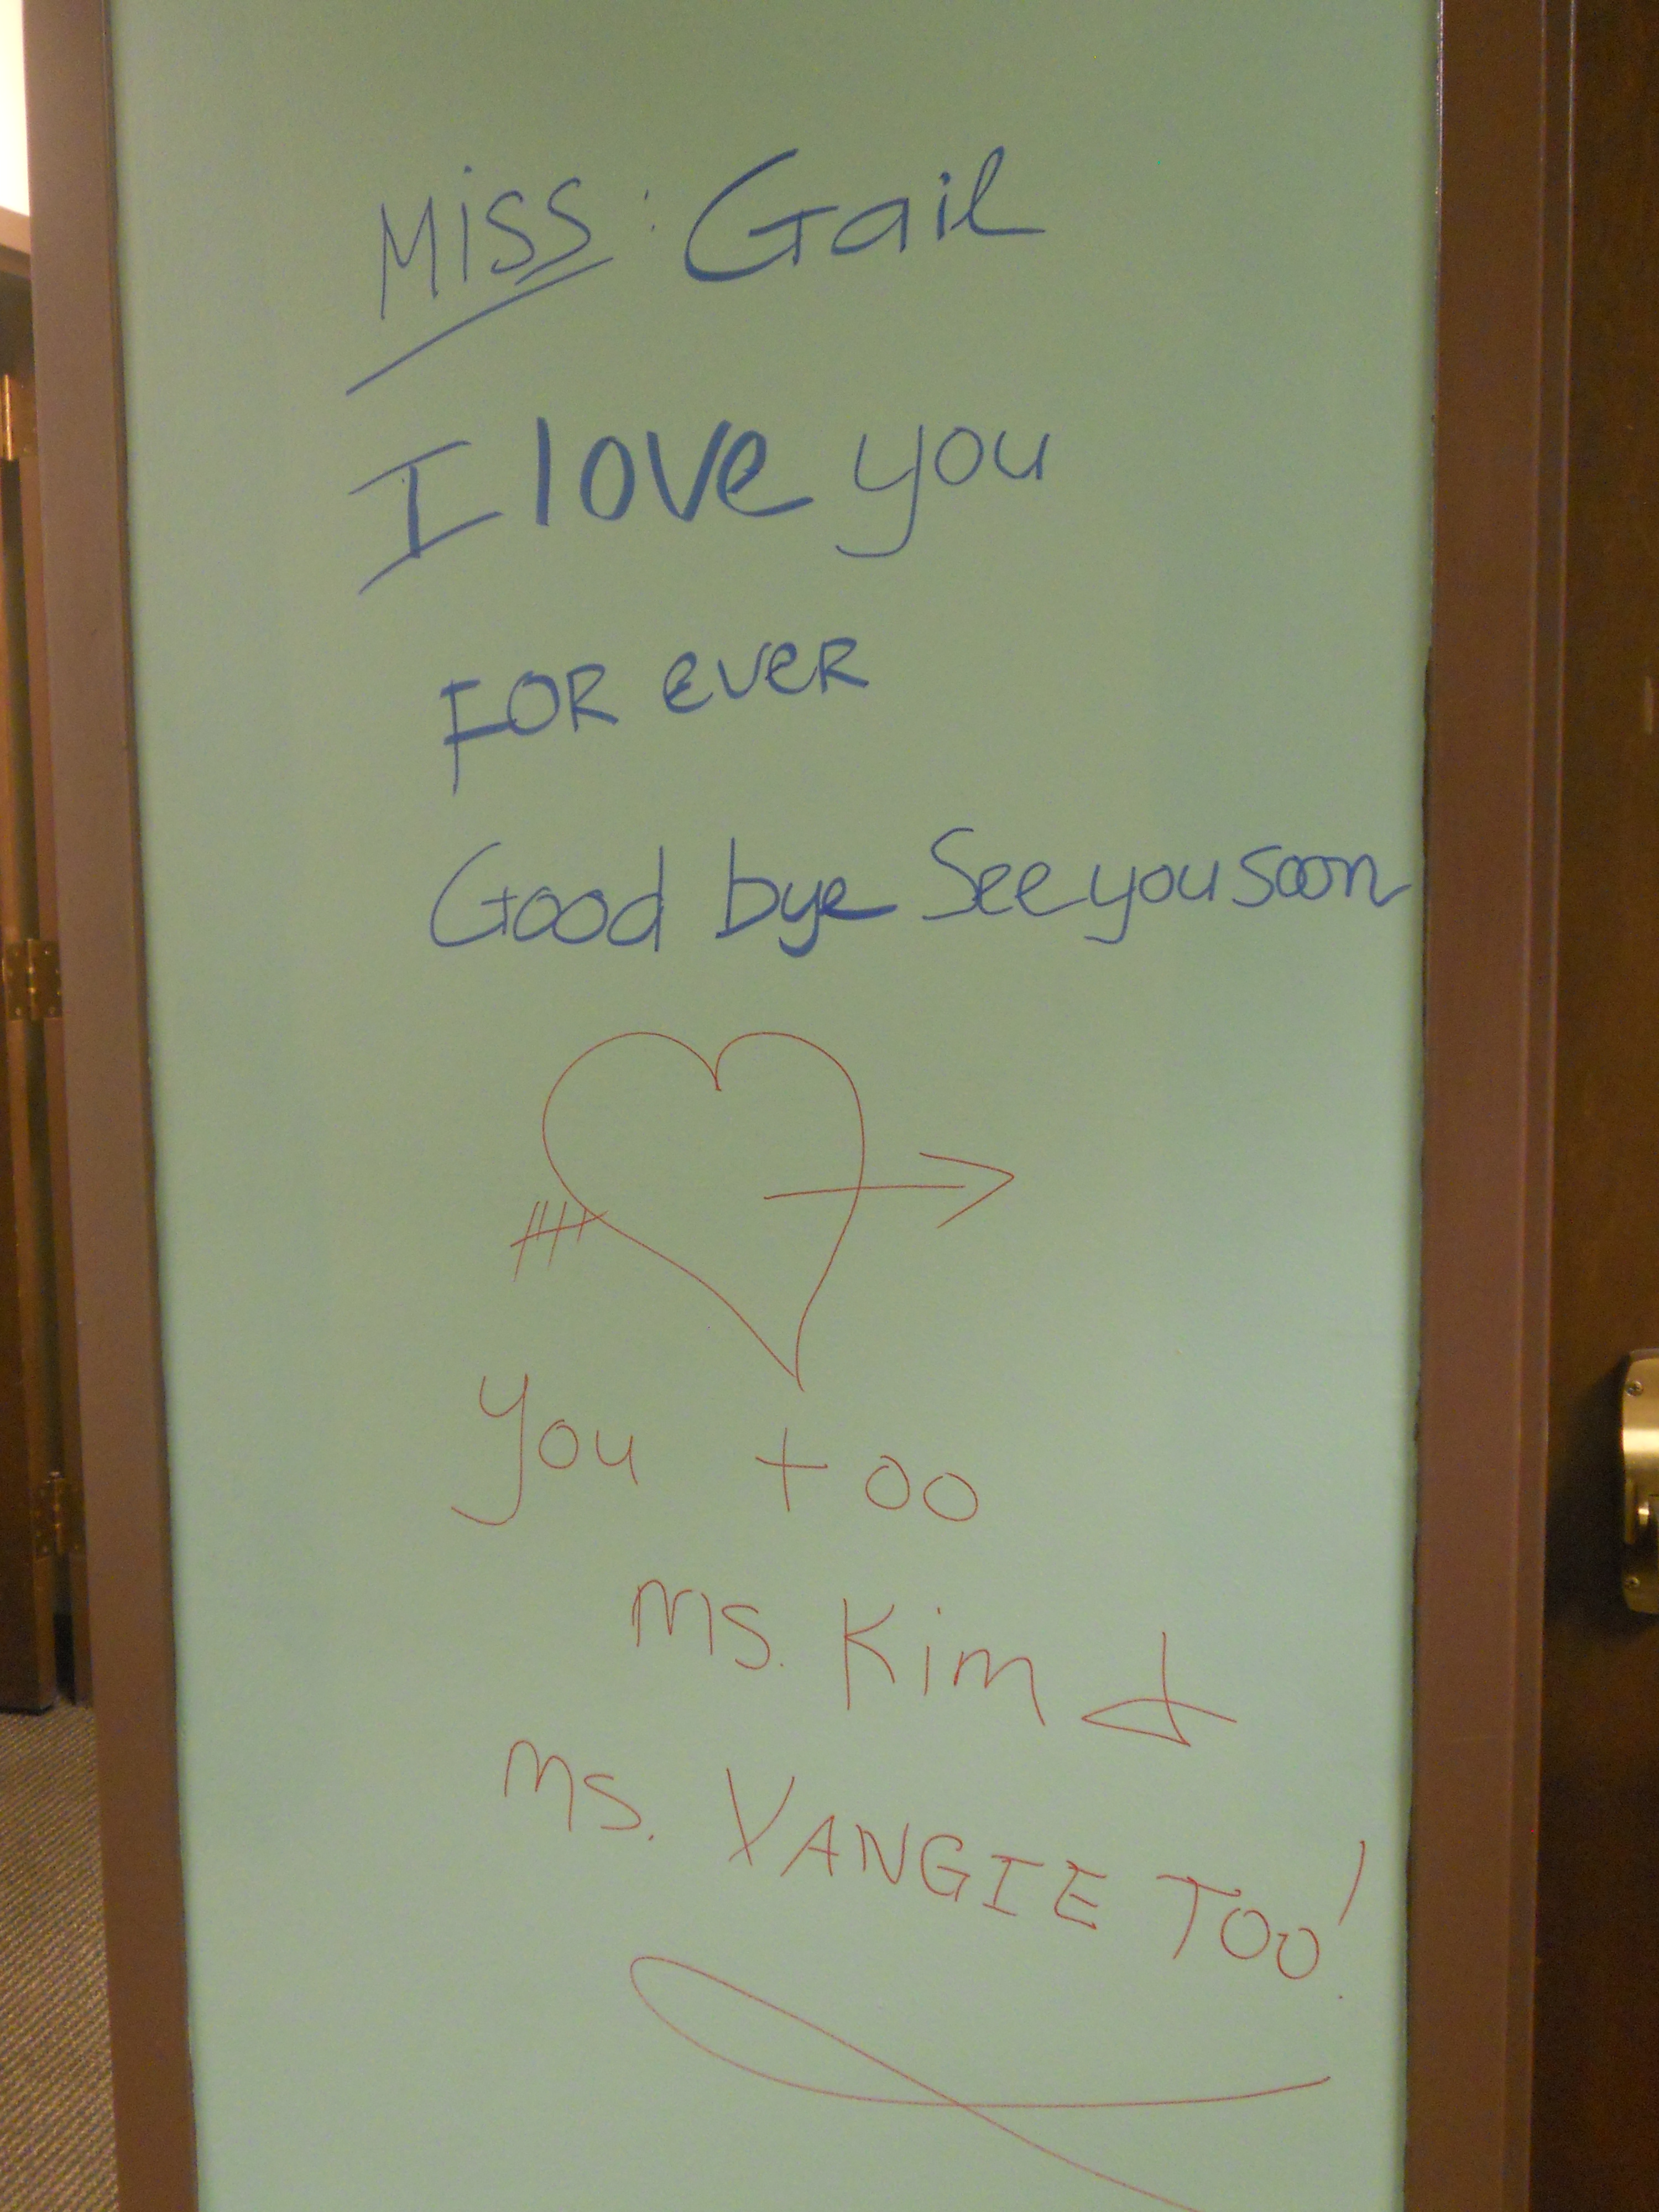 Miss: Gail
I love you
FOR EVER
Good bye See you soon
you too
Ms. Kim &
Ms. VANGIE TOO!